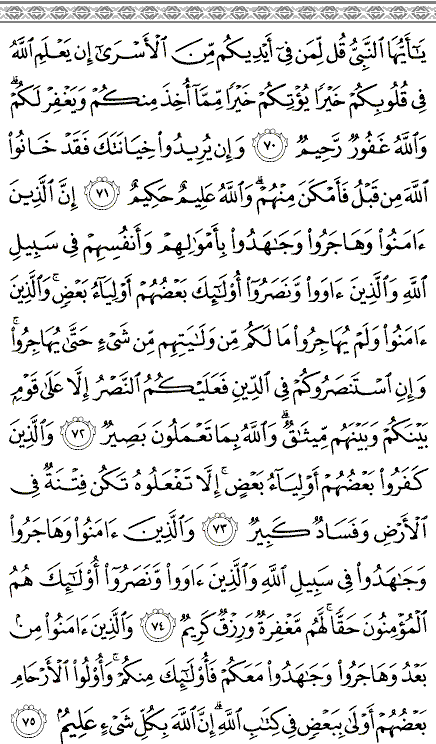 يَٰٓأَيُّهَا ٱلنَّبِىُّ قُل لِّمَن فِىٓ أَيْدِيكُم مِّنَ ٱلْأَسْرَىٰٓ إِن يَعْلَمِ ٱللَّهُ
فِى قُلُوبِكُمْ خَيْرًا يُؤْتِكُمْ خَيْرًا مِّمَّآ أُخِذَ مِنكُمْ وَيَغْفِرْ لَكُمْ ۗ
وَٱللَّهُ غَفُورٌ رَّحِيمٌ ٧٠ وَإِن يُرِيدُوا۟ خِيَانَتَكَ فَقَدْ خَانُوا۟
ٱللَّهَ مِن قَبْلُ فَأَمْكَنَ مِنْهُمْ ۗ وَٱللَّهُ عَلِيمٌ حَكِيمٌ ٧١ إِنَّ ٱلَّذِينَ
ءَامَنُوا۟ وَهَاجَرُوا۟ وَجَٰهَدُوا۟ بِأَمْوَٰلِهِمْ وَأَنفُسِهِمْ فِى سَبِيلِ
ٱللَّهِ وَٱلَّذِينَ ءَاوَوا۟ وَّنَصَرُوٓا۟ أُو۟لَٰٓئِكَ بَعْضُهُمْ أَوْلِيَآءُ بَعْضٍ ۚ وَٱلَّذِينَ
ءَامَنُوا۟ وَلَمْ يُهَاجِرُوا۟ مَا لَكُم مِّن وَلَٰيَتِهِم مِّن شَىْءٍ حَتَّىٰ يُهَاجِرُوا۟ ۚ
وَإِنِ ٱسْتَنصَرُوكُمْ فِى ٱلدِّينِ فَعَلَيْكُمُ ٱلنَّصْرُ إِلَّا عَلَىٰ قَوْمٍۭ
بَيْنَكُمْ وَبَيْنَهُم مِّيثَٰقٌ ۗ وَٱللَّهُ بِمَا تَعْمَلُونَ بَصِيرٌ ٧٢ وَٱلَّذِينَ
كَفَرُوا۟ بَعْضُهُمْ أَوْلِيَآءُ بَعْضٍ ۚ إِلَّا تَفْعَلُوهُ تَكُن فِتْنَةٌ فِى
ٱلْأَرْضِ وَفَسَادٌ كَبِيرٌ ٧٣ وَٱلَّذِينَ ءَامَنُوا۟ وَهَاجَرُوا۟
وَجَٰهَدُوا۟ فِى سَبِيلِ ٱللَّهِ وَٱلَّذِينَ ءَاوَوا۟ وَّنَصَرُوٓا۟ أُو۟لَٰٓئِكَ هُمُ
ٱلْمُؤْمِنُونَ حَقًّا ۚ لَّهُم مَّغْفِرَةٌ وَرِزْقٌ كَرِيمٌ ٧٤ وَٱلَّذِينَ ءَامَنُوا۟ مِنۢ
بَعْدُ وَهَاجَرُوا۟ وَجَٰهَدُوا۟ مَعَكُمْ فَأُو۟لَٰٓئِكَ مِنكُمْ ۚ وَأُو۟لُوا۟ ٱلْأَرْحَامِ
بَعْضُهُمْ أَوْلَىٰ بِبَعْضٍ فِى كِتَٰبِ ٱللَّهِ ۗ إِنَّ ٱللَّهَ بِكُلِّ شَىْءٍ عَلِيمٌۢ ٧٥